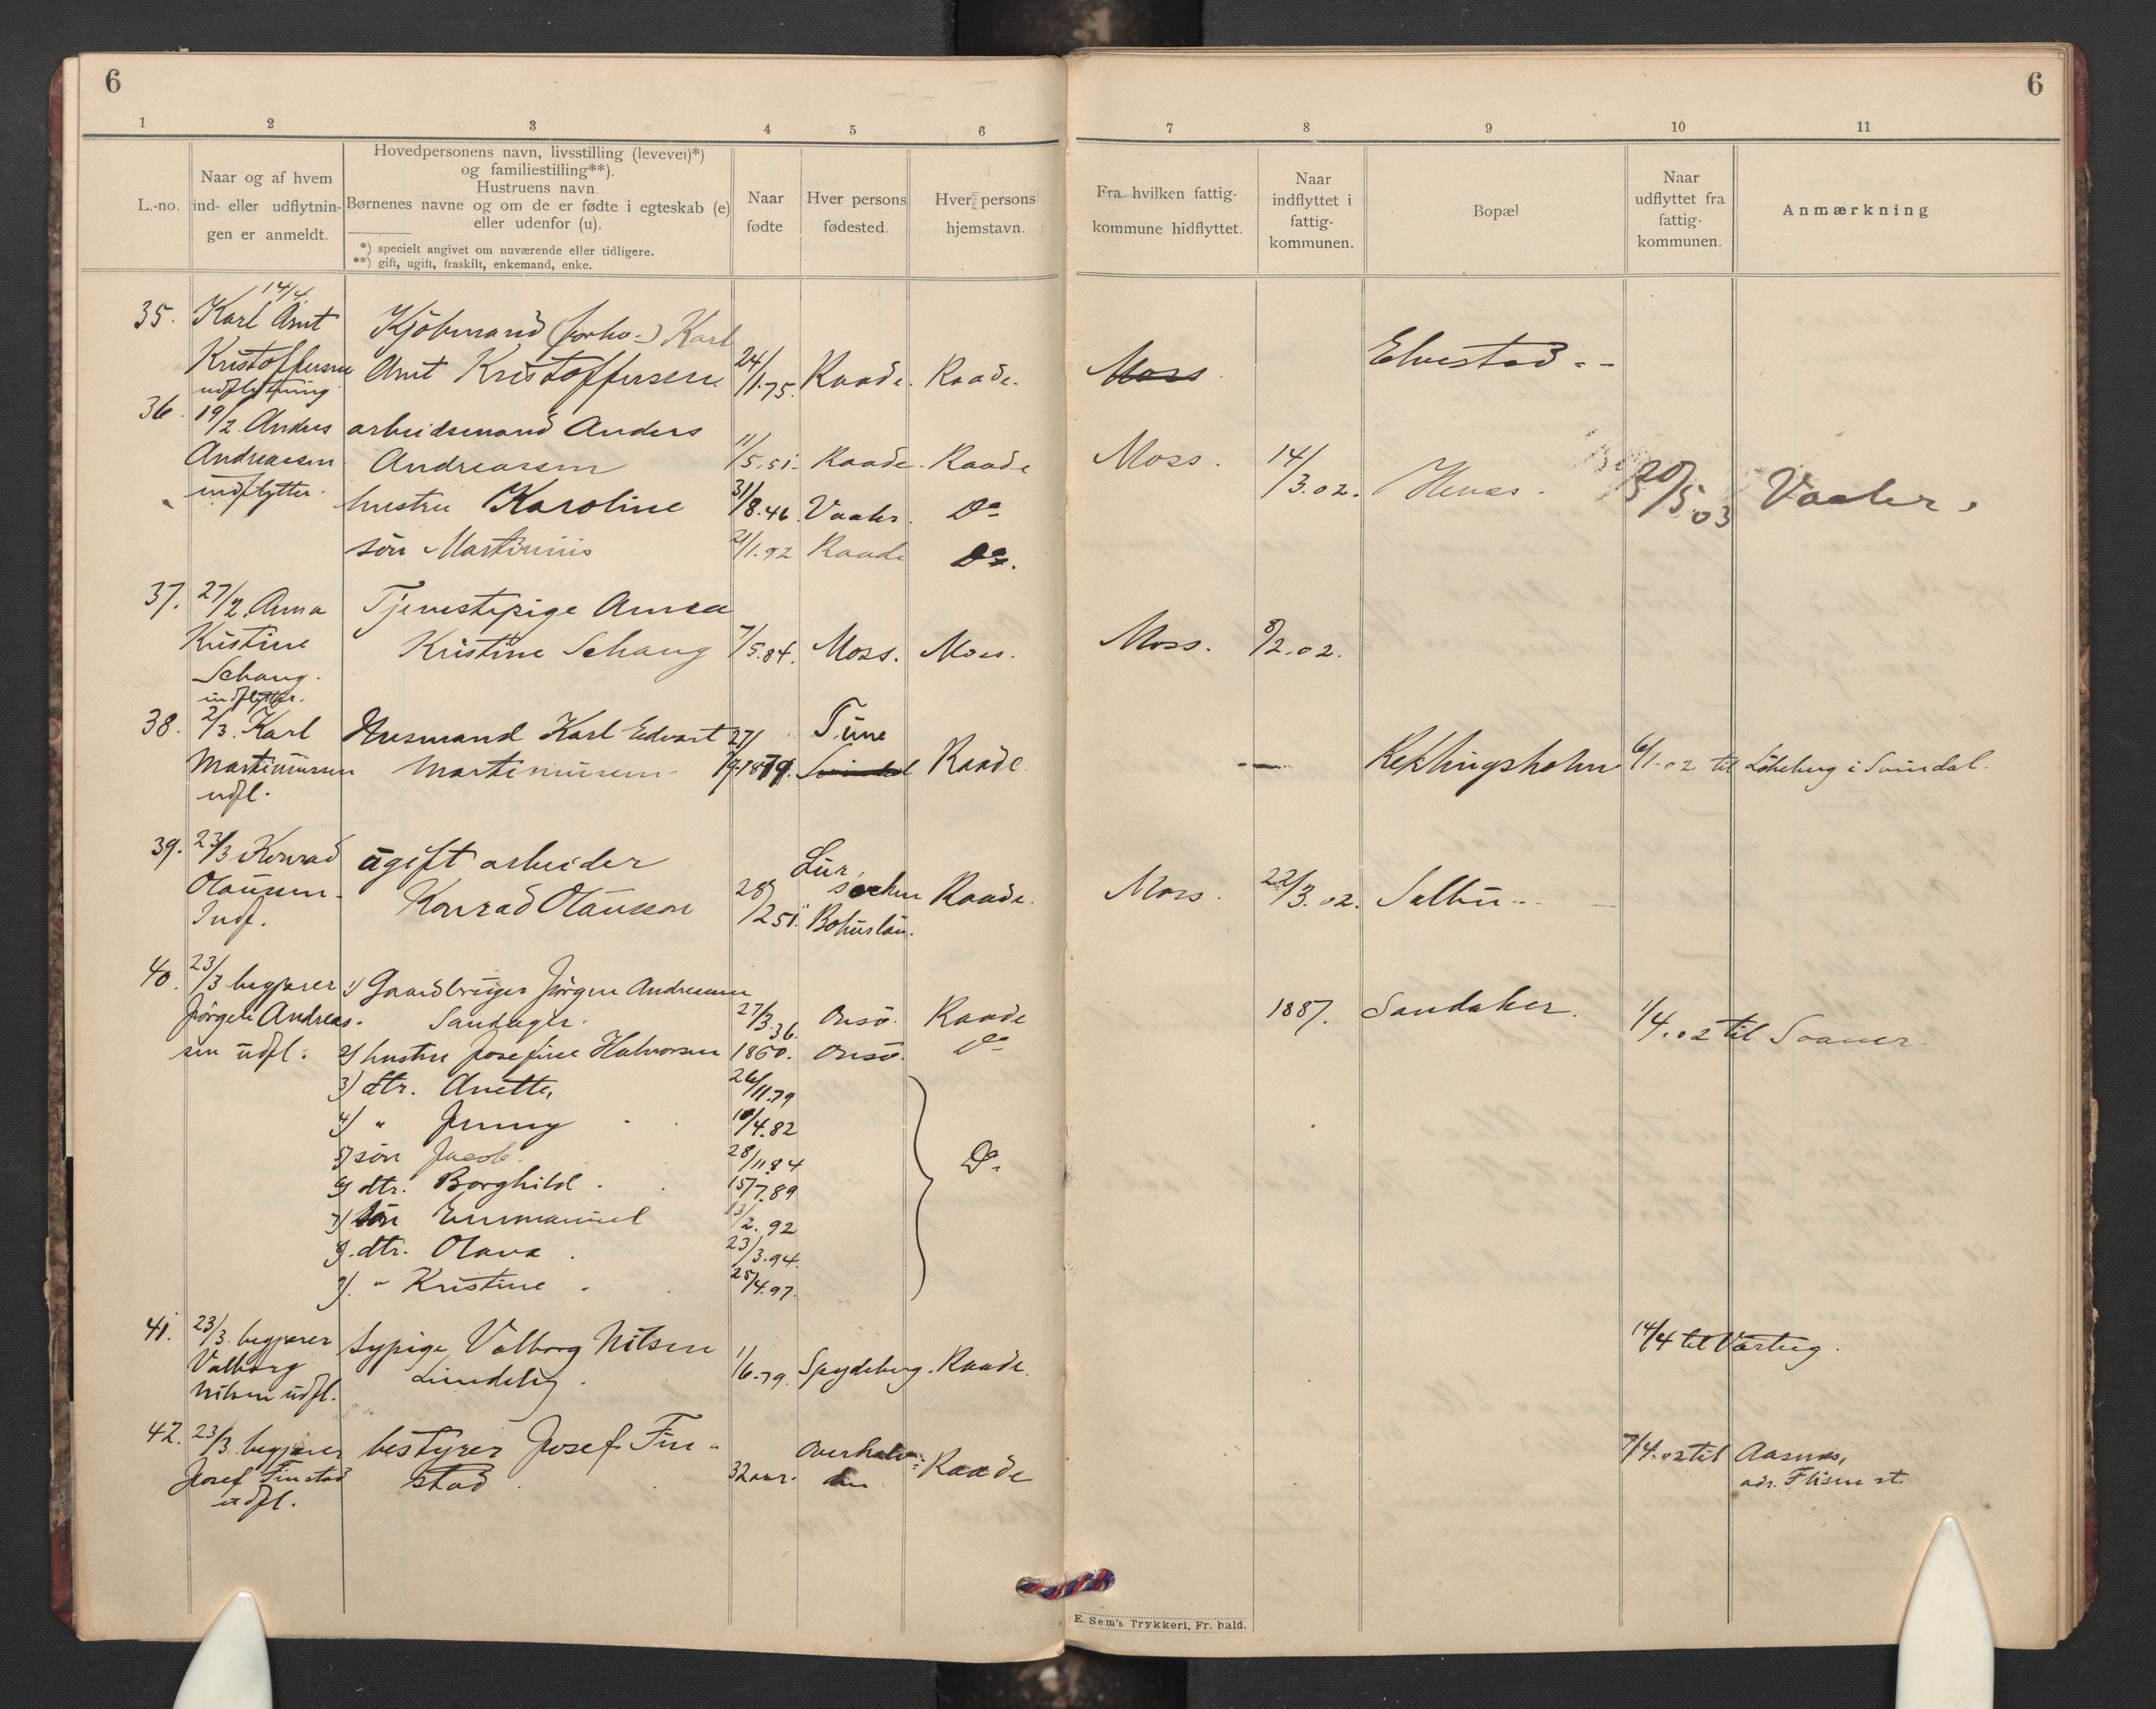 6
6
1 2 3 4 5 6 7 8 9 10 11
L.-no.
Naar og af hvem
ind- eller udflytnin-
gen er anmeldt.
Hovedpersonens navn, livsstilling (levevei)*)
og familiestilling**).
Hustruens navn
Børnenes navne og om de er fødte i egteskab (e)
eller udenfor (u).
*) specielt angivet om nuværende eller tidligere.
**) gift, ugift, fraskilt, enkemand, enke.
Naar
fødte
Hver persons
fødested.
Hver persons
hjemstavn.
Fra hvilken fattig-
kommune hidflyttet.
Naar
indflyttet i
fattig-
kommunen.
Bopæl
Naar
udflyttet fra
fattig-
kommunen.
Anmærkning
14/4.
35. Karl Arnt Kjöbmand Karl
Kristoffersen Arnt Kristoffersen 24/1.75. Raade. Raade. Moss. Elvestad
udflytning.
36. 19/2. Anders arbeidsmand Anders
Andreassen Andreassen 11/5.51. Raade. Raade Moss. 14/3.02. Henæs. 20/5 03 Vaaler.
indflytter. hustru Karoline 31/8.46. Vaaler. Do
sön Martinius 21/1.92 Raade Do.
37. 27/2. Anna Tjenestepige Anna
Kristine Kristine Schaug 7/5.84. Moss. Moss. Moss. 8/2.02.
Schaug.
indflytter.
38. 2/3. Karl Husmand Karl Edvart 27/ Tune
Martiniussen Martiniussen 9.1879. Raade. Rekklingsholm 6/1.02 til Lökeberg i Svindal.
udfl.
39. 23/3 Konrad ugift arbeider Lur,
Olaussen. Konrad Olaussen 28/2 51. sochn Raade. Moss. 22/3.02. Saltbu
Indf. Bohuslän.
40. 23/3. begjærer 1) Gaardbruger Jörgen Andreassen
Jörgen Andreas- Sandager. 27/3.36. Onsö. Raade 1887. Sandaker. 1/4.02 til Soaner.
sen udfl. 2) hustru Josefine Halvorsen 1860. Onsö. Do
3) dtr. Anette, 26/11.79
4) " Jenny 10/4.82
5) sön Jacob. 28/11.84 Do
6) dtr. Borghild. 15/7.89
7) sön Emmanuel 13/2.92
8). dtr. Olava. 23/3.94.
9). " Kristine. 25/4.97.
41. 23/3. begjærer Sypige Valborg Nilsen 14/4 til Varteig.
Valborg Lundeby. 1/6.79. Spydeberg. Raade.
Nilsen udfl.
42. 23/3. begjærer bestyrer Josef Fin- Overhalv- 7/4.02 til Aasnes,
Josef Finstad stad. 32 aar. den Raade adr. Flisen st.
udfl.
E. Sem's Trykkeri, Fr. hald.